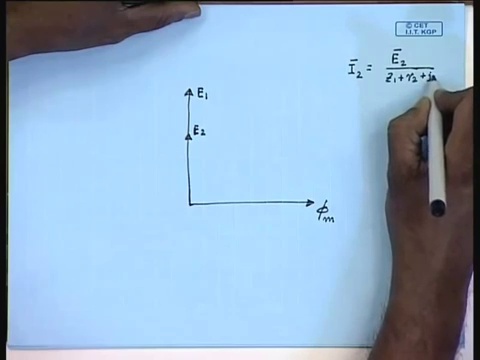 © CET
I.I.T. KGP
Ī₂ = Ē₂ / z₁+r₂+j
E₁
E₂
ϕm